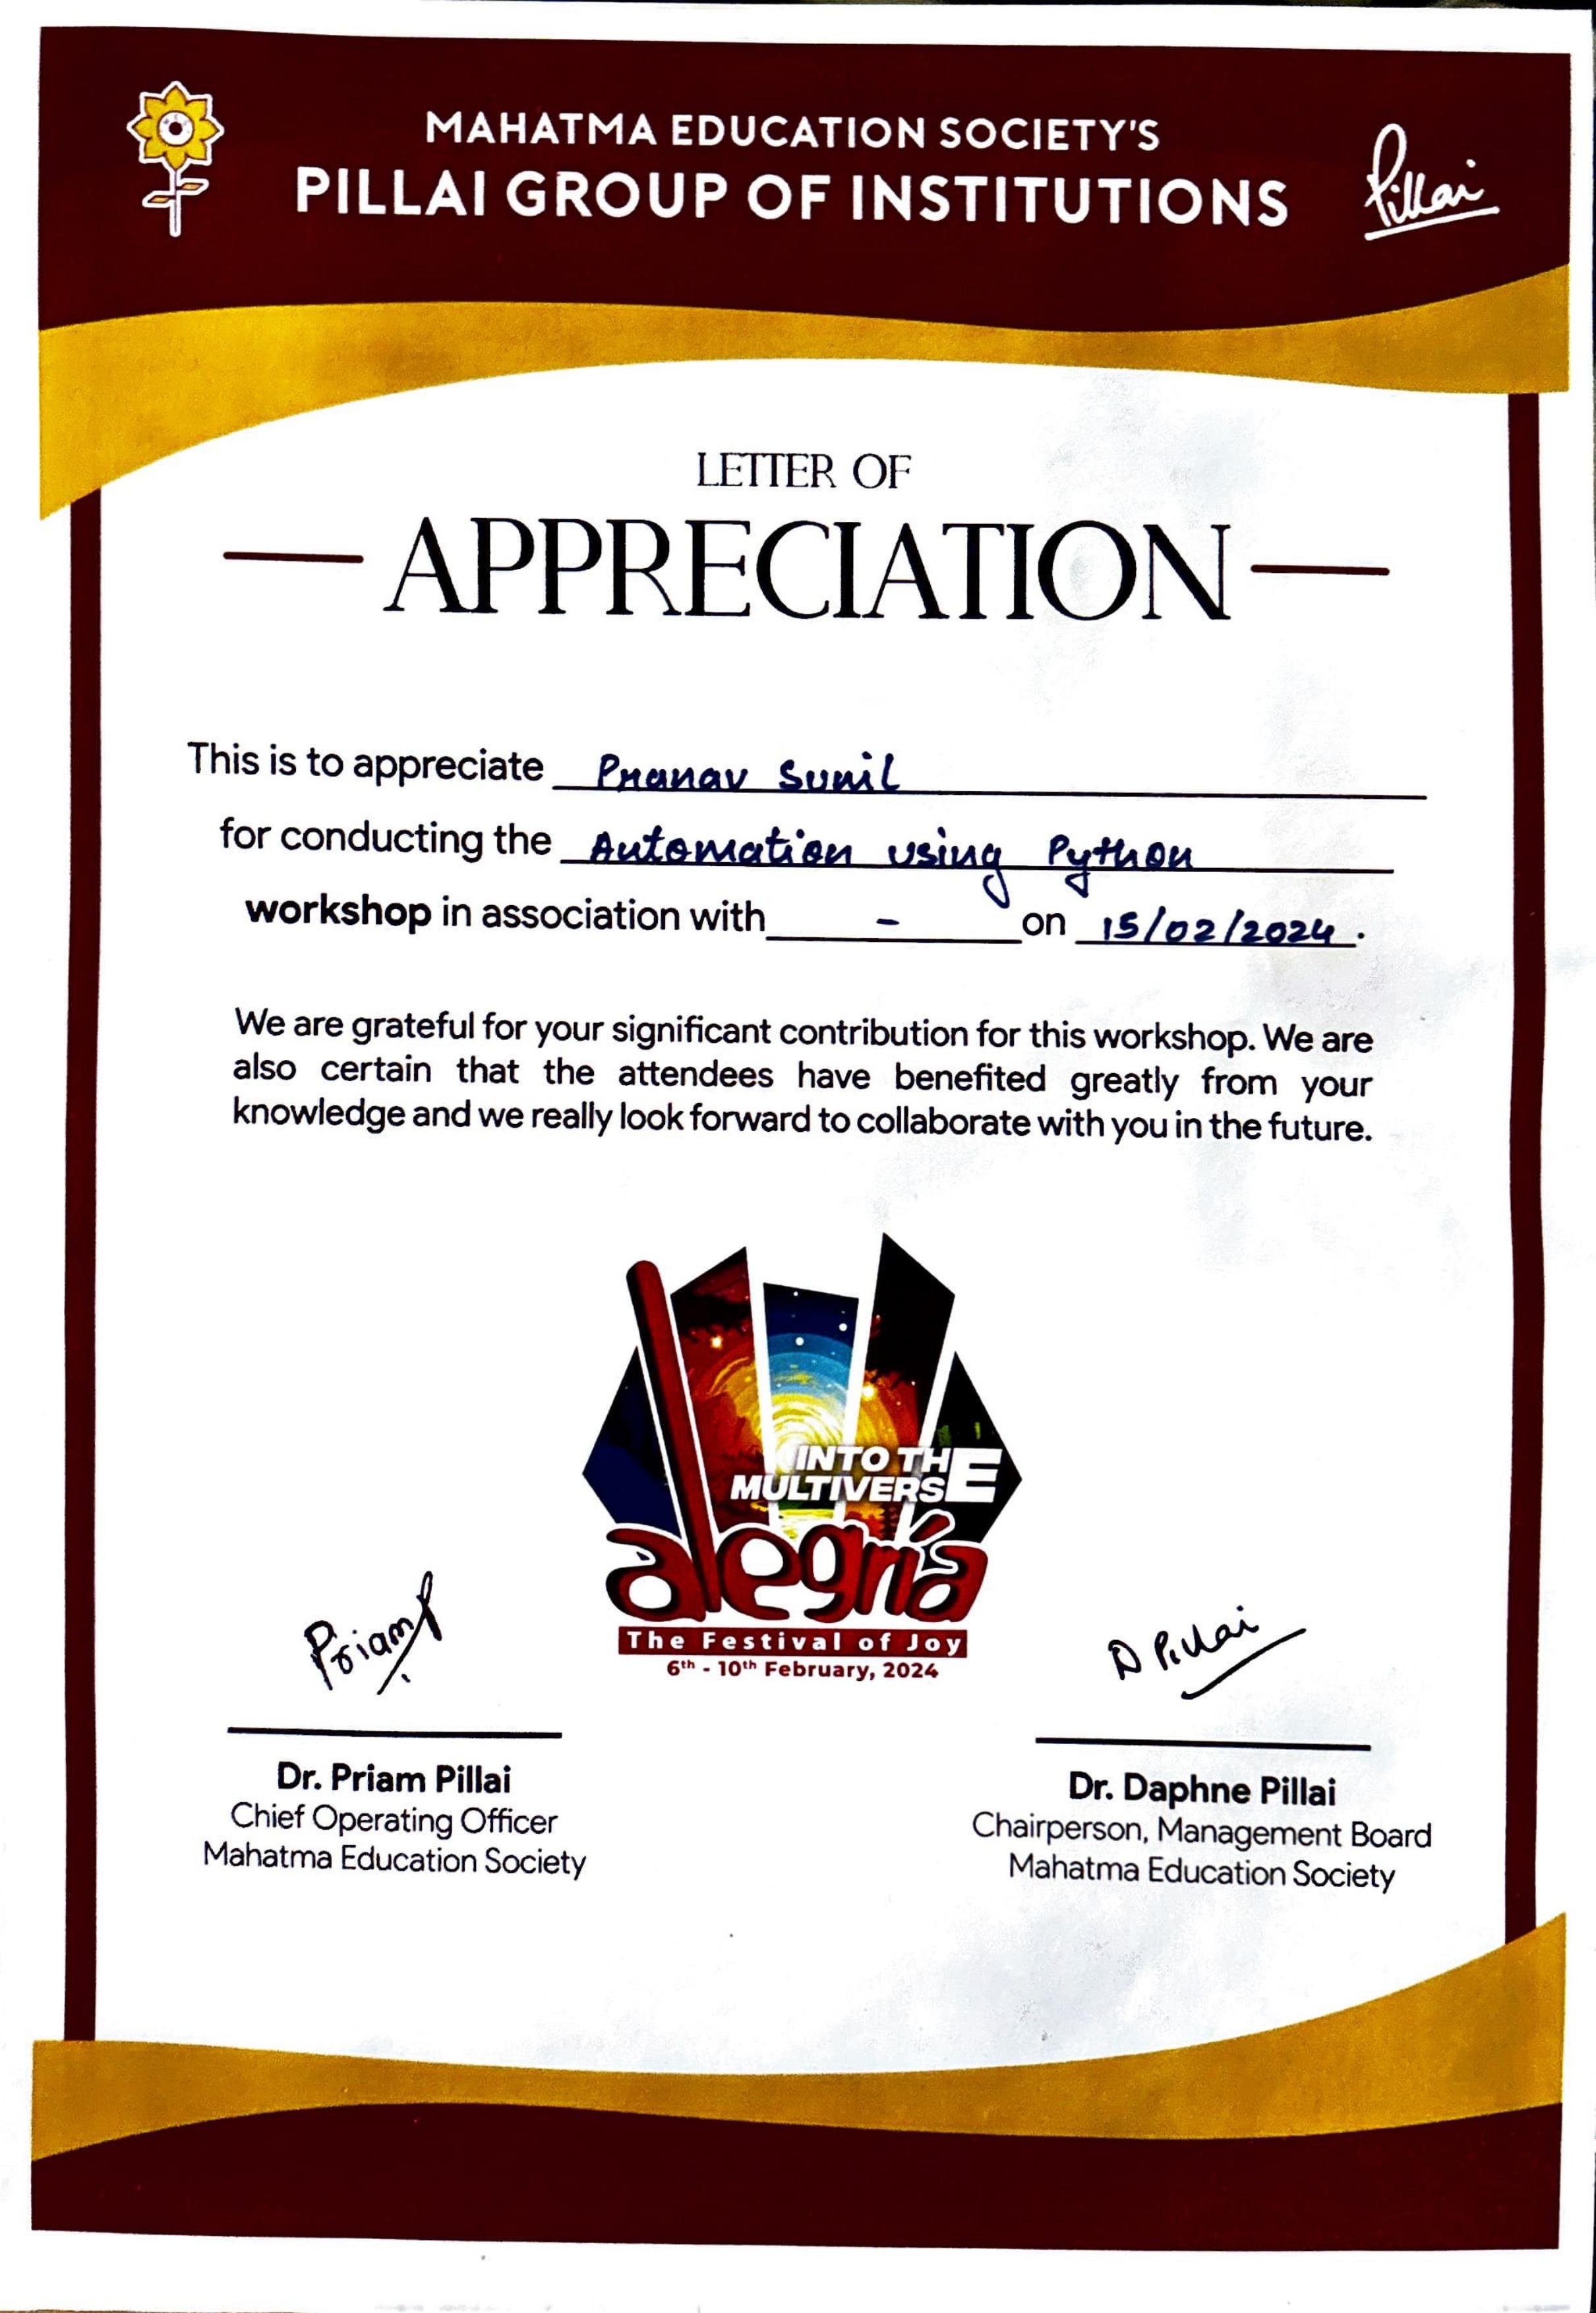 MAHATMA EDUCATION SOCIETY'S
PILLAI GROUP OF INSTITUTIONS
Pillai
LETTER OF
APPRECIATION
This is to appreciate Pranav Sunil
for conducting the Automation using Python
workshop in association with - on 15/02/2024.
We are grateful for your significant contribution for this workshop. We are
also certain that the attendees have benefited greatly from your
knowledge and we really look forward to collaborate with you in the future.
INTO THE
MULTIVERSE
alegría
The Festival of Joy
6th - 10th February, 2024
Priam P
D Pillai
Dr. Priam Pillai
Chief Operating Officer
Mahatma Education Society
Dr. Daphne Pillai
Chairperson, Management Board
Mahatma Education Society